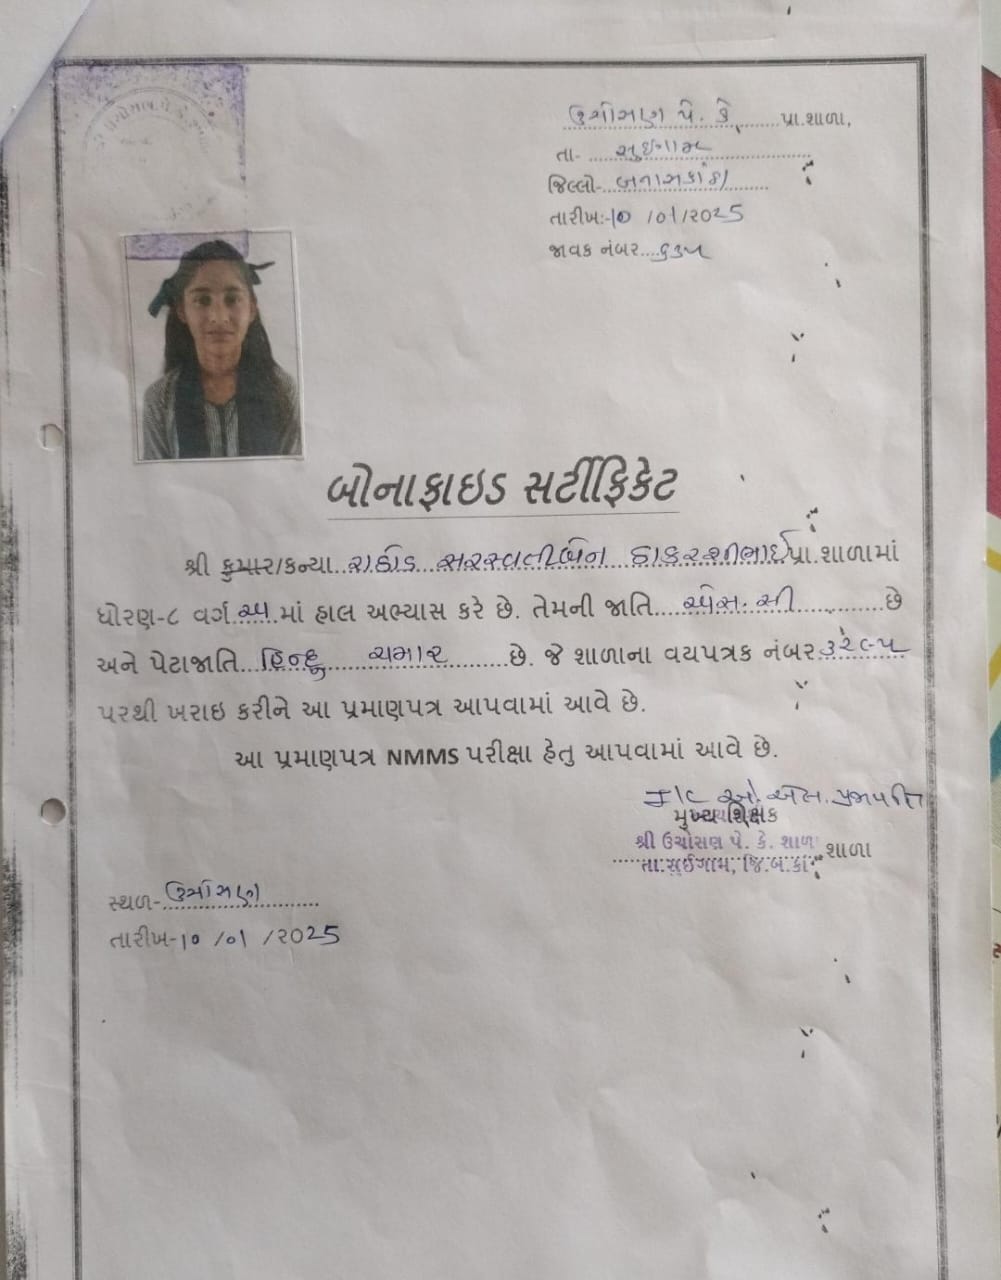 ઉચોસણ પે. કે. પ્રા.શાળા,
તા- સુઈગામ
જિલ્લો- બનાસકાંઠા
તારીખ:-10 /01/2025
જાવક નંબર....૬૩૫
બોનાફાઇડ સર્ટીફિકેટ
શ્રી કુમાર/કન્યા..રાઠોડ સરસ્વતીબેન ઠાકરશીભાઈ પ્રા.શાળામાં
ધોરણ-૮ વર્ગ અ માં હાલ અભ્યાસ કરે છે. તેમની જાતિ...એસ.સી...છે
અને પેટાજાતિ...હિન્દુ ચમાર...છે. જે શાળાના વયપત્રક નંબર
પરથી ખરાઇ કરીને આ પ્રમાણપત્ર આપવામાં આવે છે.
આ પ્રમાણપત્ર NMMS પરીક્ષા હેતુ આપવામાં આવે છે.
I/C ઓ. એલ. પ્રજાપતિ
મુખ્યશિક્ષક
શ્રી ઉચોસણ પે. કે. શાળા શાળા
તા.સુઈગામ, જિ.બ.કાં
સ્થળ-ઉચોસણ
તારીખ-10 /01 /2025